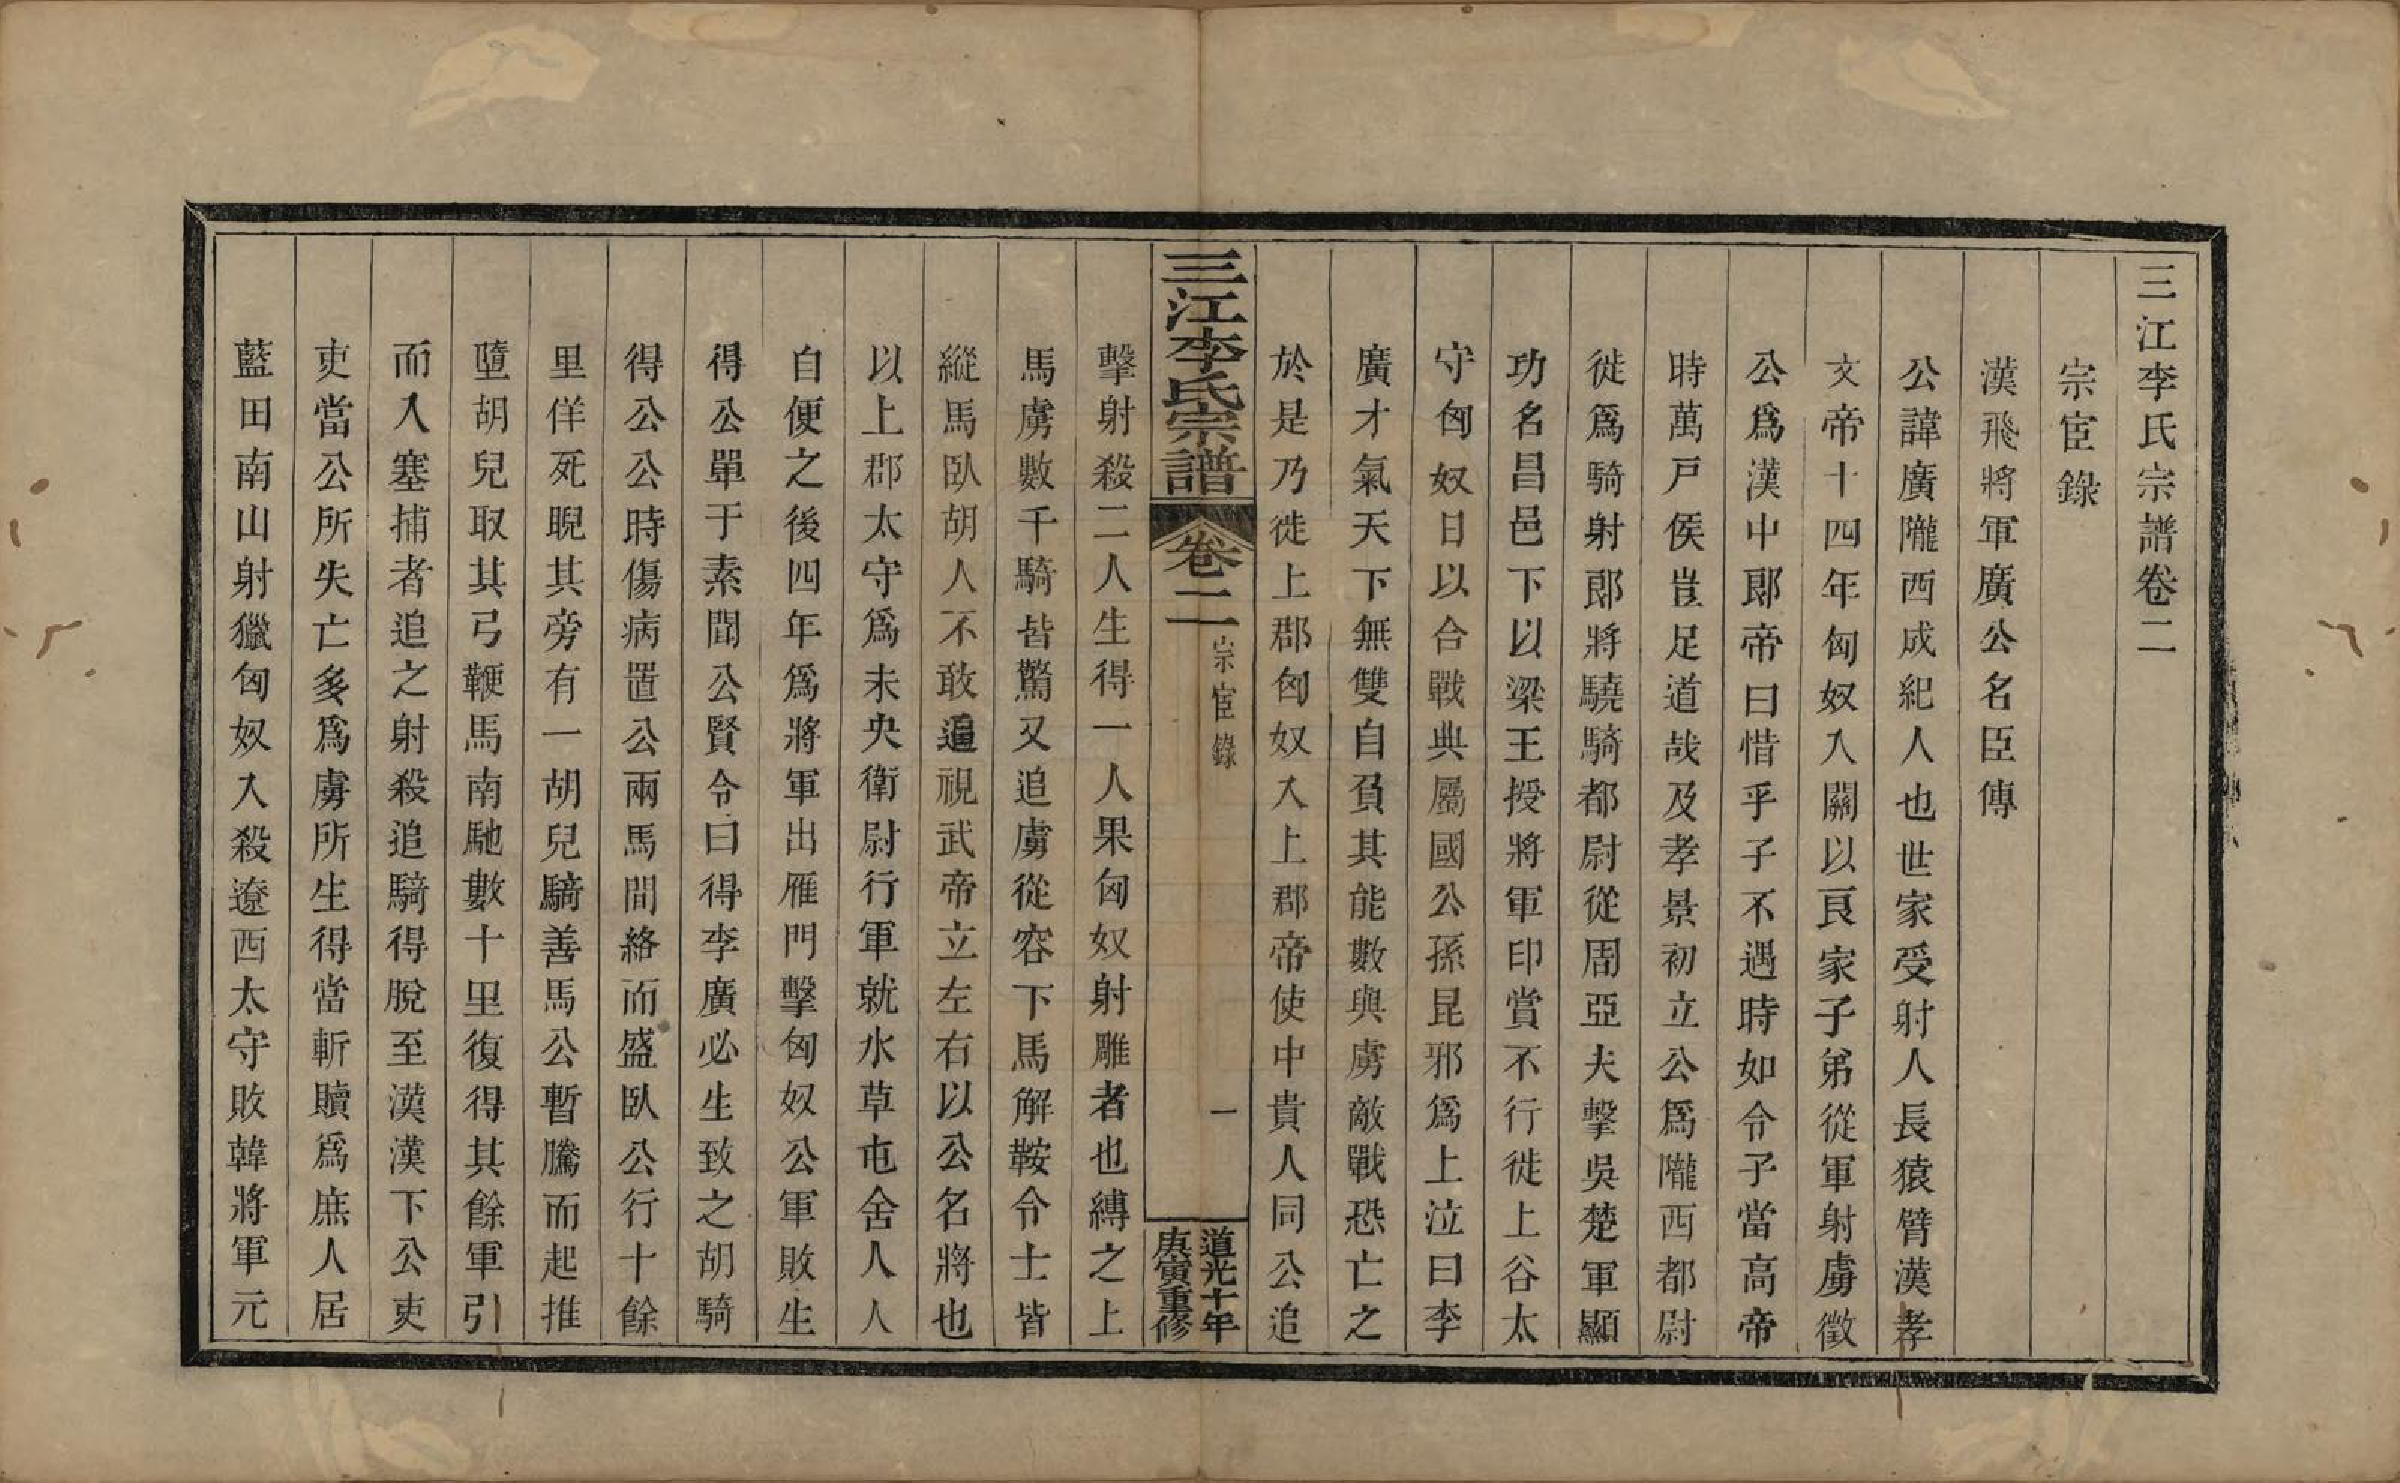 三江李氏宗譜卷二
宗宦錄
漢飛將軍廣公名臣傳
公諱廣隴西成紀人也世家受射人長猿臂漢孝
文帝十四年匈奴入關以良家子弟從軍射虜徵
公爲漢中郎帝曰惜乎子不遇時如令子當高帝
時萬戸侯豈足道哉及孝景初立公爲隴西都尉
徙爲騎射郎將驍騎都尉從周亞夫擊吳楚軍顯
功名昌邑下以梁王授將軍印賞不行徙上谷太
守匈奴日以合戰典屬國公孫昆邪爲上泣曰李
廣才氣天下無雙自負其能數與虜敵戰恐亡之
於是乃徙上郡匈奴入上郡帝使中貴人同公追
三江李氏宗譜
卷二
宗宦錄
一
道光十年
庚寅重修
擊射殺二人生得一人果匈奴射雕者也縛之上
馬虜數千騎皆驚又追虜從容下馬解鞍令士皆
縱馬臥胡人不敢逼視武帝立左右以公名將也
以上郡太守爲未央衛尉行軍就水草屯舍人人
自便之後四年爲將軍出雁門擊匈奴公軍敗生
得公單于素聞公賢令曰得李廣必生致之胡騎
得公公時傷病置公兩馬間絡而盛臥公行十餘
里佯死睨其旁有一胡兒騎善馬公暫騰而起推
墮胡兒取其弓鞭馬南馳數十里復得其餘軍引
而入塞捕者追之射殺追騎得脫至漢漢下公吏
吏當公所失亡多爲虜所生得當斬贖爲庶人居
藍田南山射獵匈奴入殺遼西太守敗韓將軍元